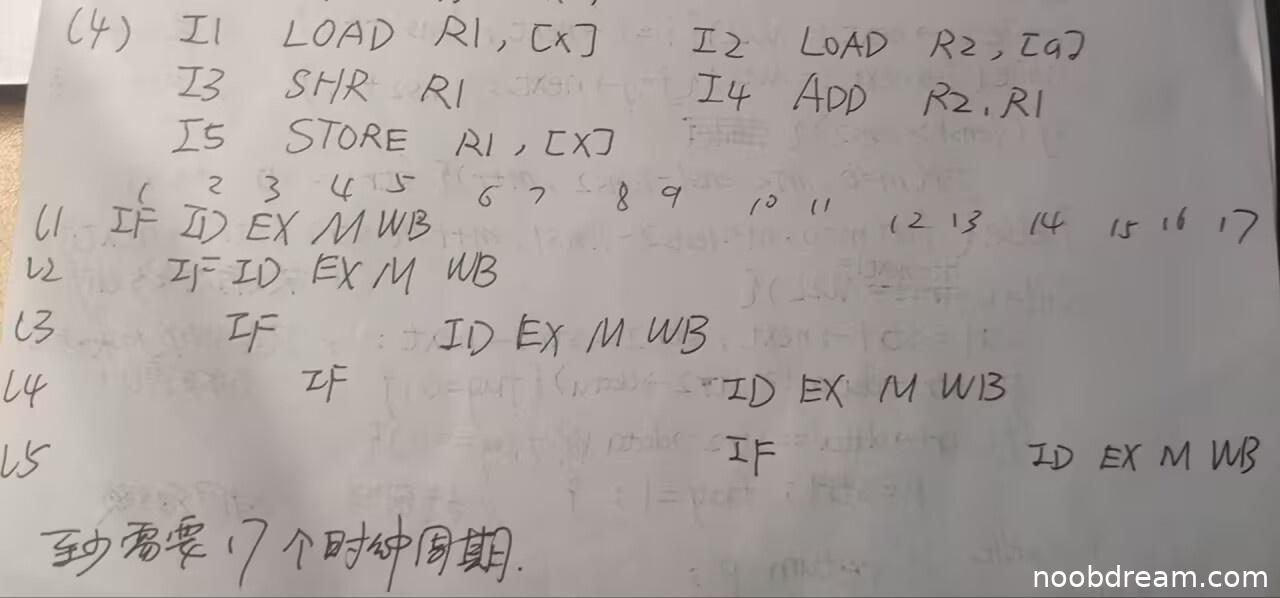 (4) I1 LOAD R1, [X] I2 LOAD R2, [a]
I3 SHR R1 I4 ADD R2, R1
I5 STORE R1, [X]
1 2 3 4 5 6 7 8 9 10 11 12 13 14 15 16 17
L1 IF ID EX M WB
L2 IF ID EX M WB
L3 IF ID EX M WB
L4 IF ID EX M WB
L5 IF ID EX M WB
至少需要17个时钟周期.
noobdream.com